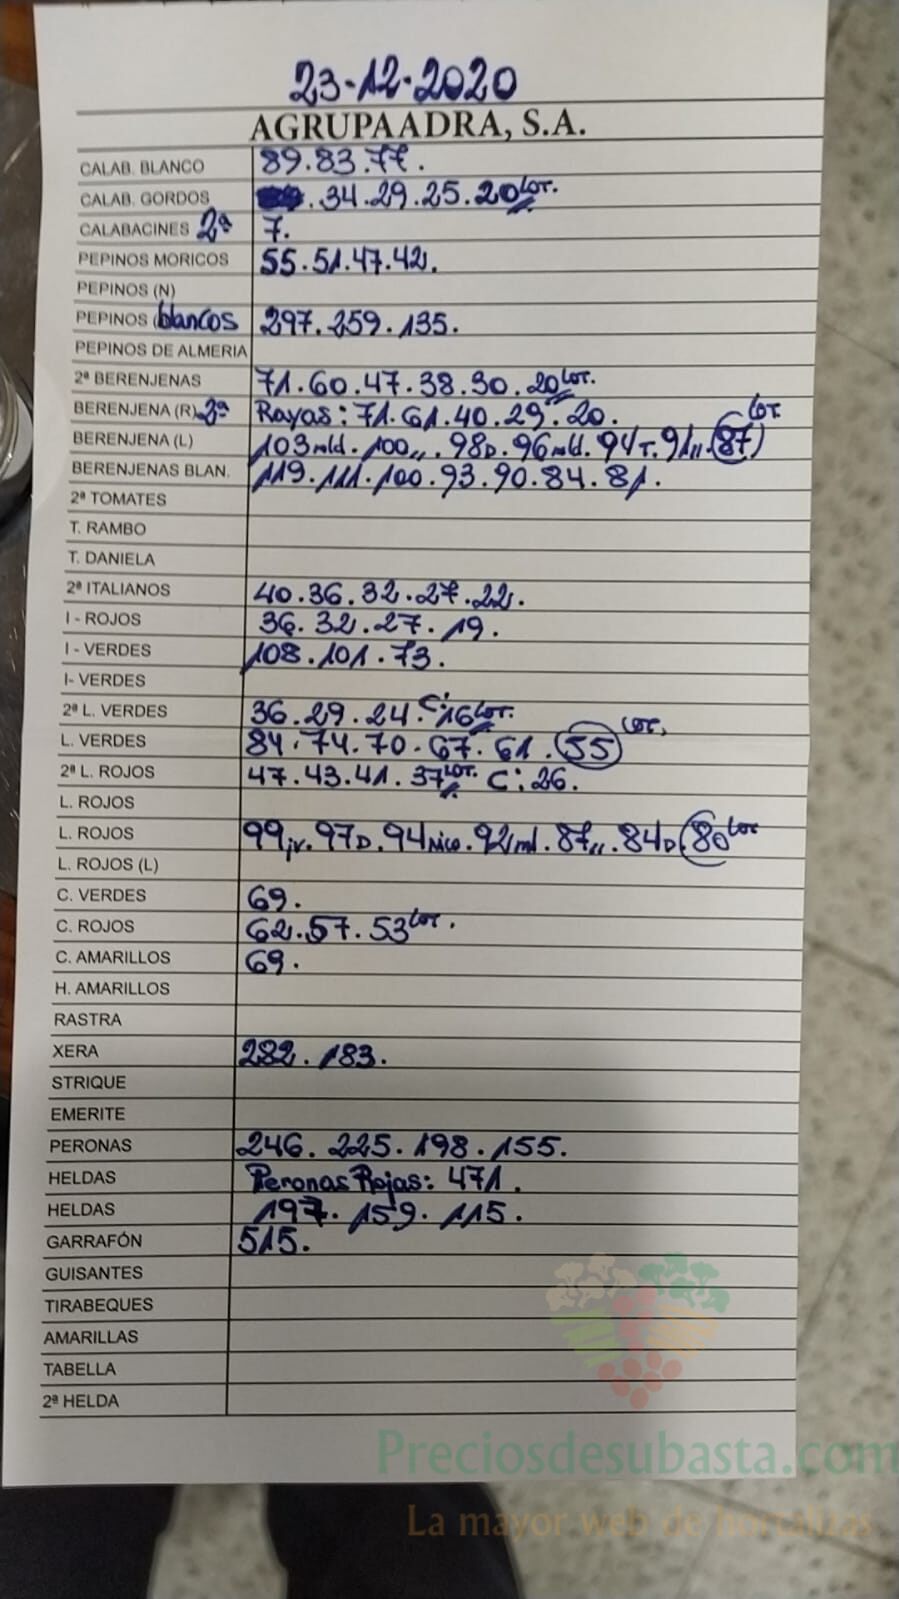 23-12-2020
AGRUPAADRA, S.A.
CALAB. BLANCO 89.83.77.
CALAB. GORDOS .34.29.25.20 Lot.
CALABACINES 2ª 7.
PEPINOS MORICOS 55.51.47.42.
PEPINOS (N)
PEPINOS (blancos 297.259.135.
PEPINOS DE ALMERIA
2ª BERENJENAS 71.60.47.38.30.20 Lot.
BERENJENA (R) 2ª Rayas: 71.61.40.29.20.
BERENJENA (L) 103 mld. 100 ,,. 98D. 96 mld. 94T. 91 ,,. 87 Lot.
BERENJENAS BLAN. 119.111.100.93.90.84.81.
2ª TOMATES
T. RAMBO
T. DANIELA
2ª ITALIANOS 40.36.32.27.22.
I - ROJOS 36.32.27.19.
I - VERDES 108.101.73.
I- VERDES
2ª L. VERDES 36.29.24. C:16 Lot.
L. VERDES 84.74.70.67.61.55 Lot.
2ª L. ROJOS 47.43.41.37 Lot. C:26.
L. ROJOS
L. ROJOS 99 jv. 97D. 94 Nico. 92 ml. 87 ,,. 84D. 80 Lot
L. ROJOS (L)
C. VERDES 69.
C. ROJOS 62.57.53 Lot.
C. AMARILLOS 69.
H. AMARILLOS
RASTRA
XERA 282.183.
STRIQUE
EMERITE
PERONAS 246.225.198.155.
HELDAS Peronas Rojas: 471.
HELDAS 197.159.115.
GARRAFÓN 515.
GUISANTES
TIRABEQUES
AMARILLAS
TABELLA
2ª HELDA
Preciosdesubasta.com
La mayor web de hortalizas